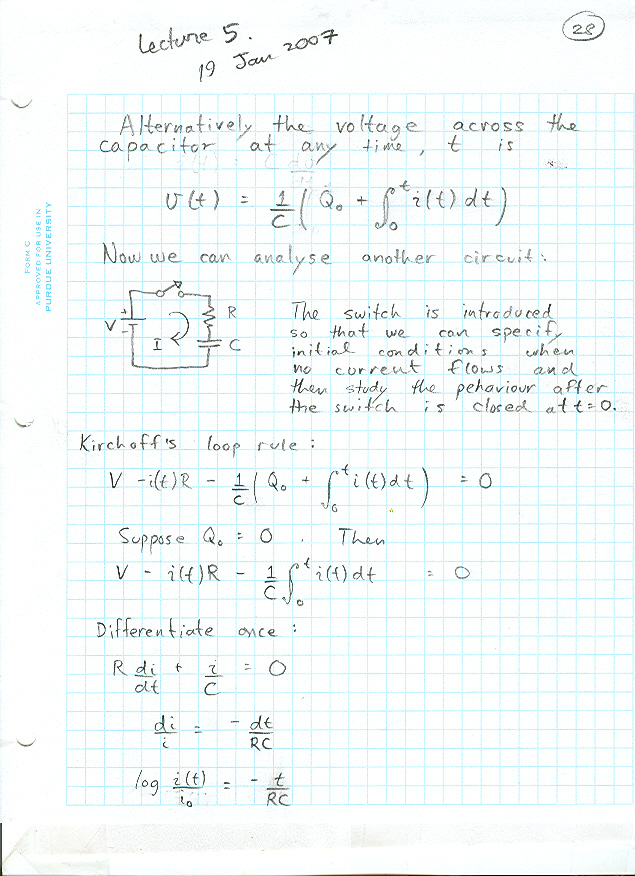 Lecture 5.
19 Jan 2007
28
FORM C
APPROVED FOR USE IN
PURDUE UNIVERSITY
Alternatively the voltage across the
capacitor at any time, t is
v(t) = 1/C ( Q₀ + ∫₀ᵗ i(t) dt )
Now we can analyse another circuit:
V + − I R C
The switch is introduced
so that we can specify
initial conditions when
no current flows and
then study the pehaviour after
the switch is closed at t=0.
Kirchoff's loop rule:
V − i(t)R − 1/C ( Q₀ + ∫₀ᵗ i(t) dt ) = 0
Suppose Q₀ = 0 . Then
V − i(t)R − 1/C ∫₀ᵗ i(t) dt = 0
Differentiate once:
R di/dt + i/C = 0
di/i = − dt/RC
log i(t)/i₀ = − t/RC